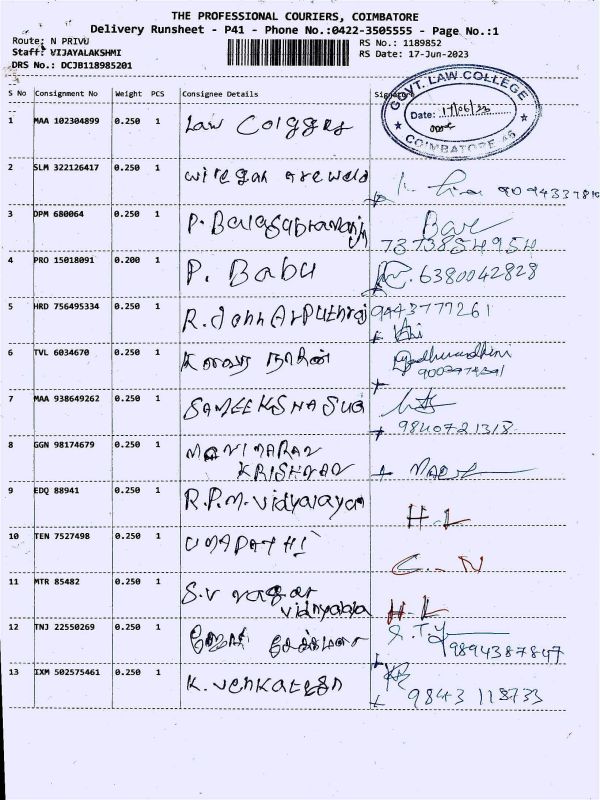 THE PROFESSIONAL COURIERS, COIMBATORE
Delivery Runsheet - P41 - Phone No.:0422-3505555 - Page No.:1
Route: N PRIVU
RS No.: 1189852
Staff: VIJAYALAKSHMI
RS Date: 17-Jun-2023
DRS No.: DCJB118985201
S No Consignment No Weight PCS Consignee Details
GOVT. LAW COLLEGE
Date: 17/06/23
COIMBATORE 46
1 MAA 102304899 0.250 1 Law
2 SLM 322126417 0.250 1
3 DPM 680064 0.250 1 P. Balasubramanian
7373854954
4 PRO 15018091 0.200 1 P. Babu 6380042828
5 HRD 756495334 0.250 1 R. John Arputhraj 9443777261
6 TVL 6034670 0.250 1
7 MAA 938649262 0.250 1 SAMEEKSHA SUB
9840721318
8 GGN 98174679 0.250 1 MANIMARAN
KRISHNAN
9 EDQ 88941 0.250 1 R.P.M. Vidyalaya H-L
10 TEN 7527498 0.250 1 UMAPATHI C-N
11 MTR 85482 0.250 1 S.V nagar
H-L
12 TNJ 22550269 0.250 1
9894387847
13 IXM 502575461 0.250 1 K. Venkatesan 9843 118733